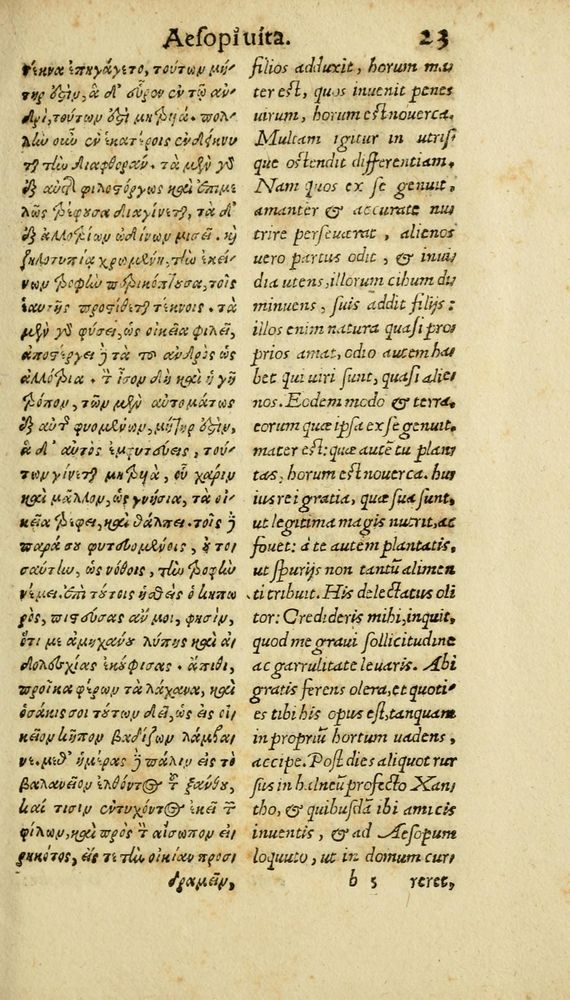 Aesopi uita. 23
τέκνα ἐπηγάγετο, τούτων μή-
τηρ ὅξιν, ἃ δ' εὗρον ἐν τῷ ἀν-
δρὶ, τούτων ὅξὶ μηϯυιά. πολ-
λὼ οὖν ἐν ἑκατέροις ἐνδείκνυ
τ τἰω διαφθοράν. τὰ μὲν γδ
ὅξ αὐτῆ φιλοστόργως καὶ ἐπιμε
λῶς τρέφουσα διαγίνετ, τὰ δ'
ὅξ ἀλλοτρίων ὠδίνων μισεῖ. κὴ
ζηλοτυπία χρωμένη, τἰω ἐκεί-
νων τροφὼ πρικόπτουσα, τοῖς
ἑαυτῆς προστίθετ τέκνοις. τὰ
μὲν γδ φύσει, ὡς οἰκεῖα φιλεῖ,
ἀποστέργει ἢ τὰ τοῦ ἀνδρὸς ὡς
ἀλλότρια. τ ἴσον δὴ καὶ ἡ γῆ
τρόπον, τῶν μὲν αὐτομάτως
ὅξ αὐτ φυομένων, μήτηρ ὅξιν,
ἃ δ' αὐτὸς ἐμφυτεύεις, τού-
των γίνετ μητρυιά, οὗ χάριν
καὶ μᾶλλον, ὡς γνήσια, τὰ οἰ-
κεῖα τρέφει, καὶ θάλπει. τοῖς ἢ
παρά σου φυτευομένοις, οὐ τοι
σαύτἰω, ὡς νόθοις, τἰω τροφἰω
νέμει. Ἐπὶ τούτοις ἡσθεὶς ὁ κηπω
ρὸς, πιστεύσας ἄν μοι, φησὶν,
ὅτι με ἀμηχάνου λύπης καὶ ἀ
δολεσχίας ἐκούφισας. ἄπιθι,
προῖκα φέρων τὰ λάχανα, καὶ
ὁσάκις σοι τούτων δεῖ, ὡς εἰς οἰ-
κεῖον κῆπον βαδίζων λάμβα-
νε. μεθ' ἡμέρας ἢ πάλιν εἰς τὸ
βαλανεῖον ἐλθόντος τ ξάνθου,
καί τισιν ἐντυχόντος ἐκεῖ τ
φίλων, καὶ πρὸς τ αἴσωπον εἰ
ρηκότος, εἴς τε τἰω οἰκίαν προσι
δραμεῖν,
filios adduxit, horum ma
ter est, quos inuenit penes
uirum, horum est nouerca.
Multam igitur in utris
que ostendit differentiam.
Nam quos ex se genuit,
amanter & accurate nu
trire perseuerat, alienos
uero partus odit, & inui
dia utens, illorum cibum di
minuens, suis addit filijs:
illos enim natura quasi pro
prios amat, odio autem ha
bet qui uiri sunt, quasi alie
nos. Eodem modo & terra
eorum quæ ipsa ex se genuit,
mater est: quæ autē tu plan
tas, horum est nouerca. hu
ius rei gratia, quæ sua sunt,
ut legitima magis nutrit, ac
fouet: à te autem plantatis,
ut spurijs non tantū alimen
ti tribuit. His delectatus oli
tor: Credideris mihi, inquit,
quod me graui sollicitudine
ac garrulitate leuaris. Abi
gratis ferens olera, et quoti-
es tibi his opus est, tanquam
in propriū hortum uadens,
accipe. Post dies aliquot rur
sus in balneū profecto Xan
tho, & quibusdā ibi amicis
inuentis, & ad Aesopum
loquuto, ut in domum cur
b 5 reret,